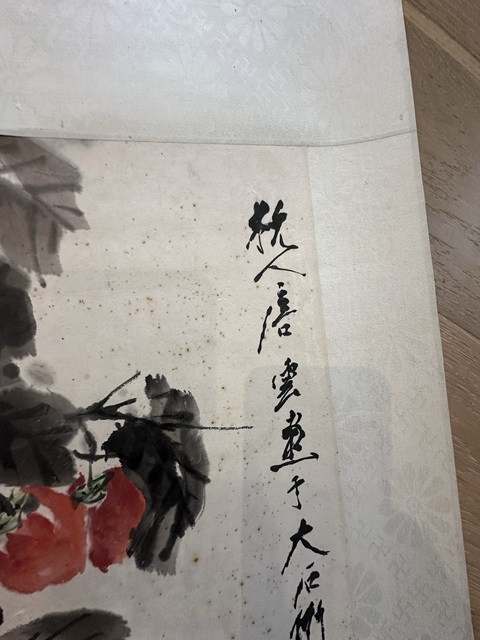 杭人唐雲畫于大石齋